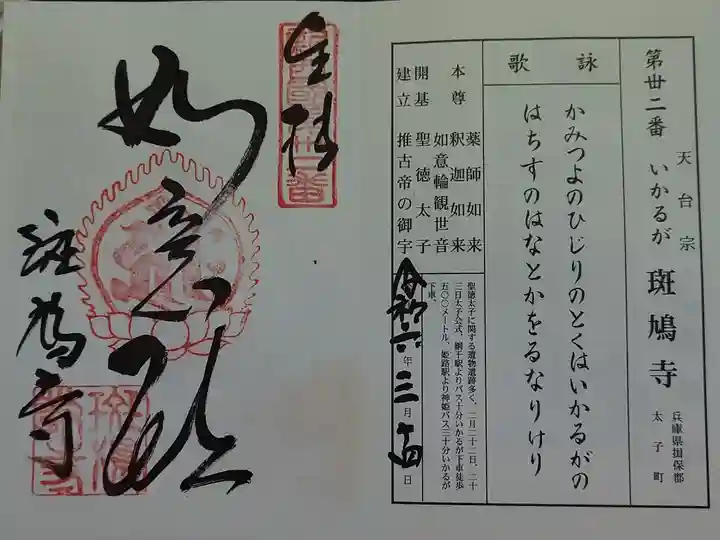 第卅二番 いかるが 天台宗 斑鳩寺 兵庫県揖保郡太子町
詠歌
かみつよのひじりのとくはいかるがの
はちすのはなとかをるなりけり
本尊 薬師如来
釈迦如来
如意輪観世音
開基 聖徳太子
建立 推古帝の御宇
聖徳太子に関する遺物遺跡多く、二月二十二日、二十
三日太子会式、網干駅よりバス十分いかるが下車徒歩
五〇〇メートル、姫路駅より神姫バス三十分いかるが
下車。
令和六年三月十四日
奉拝
如意輪
斑鳩寺